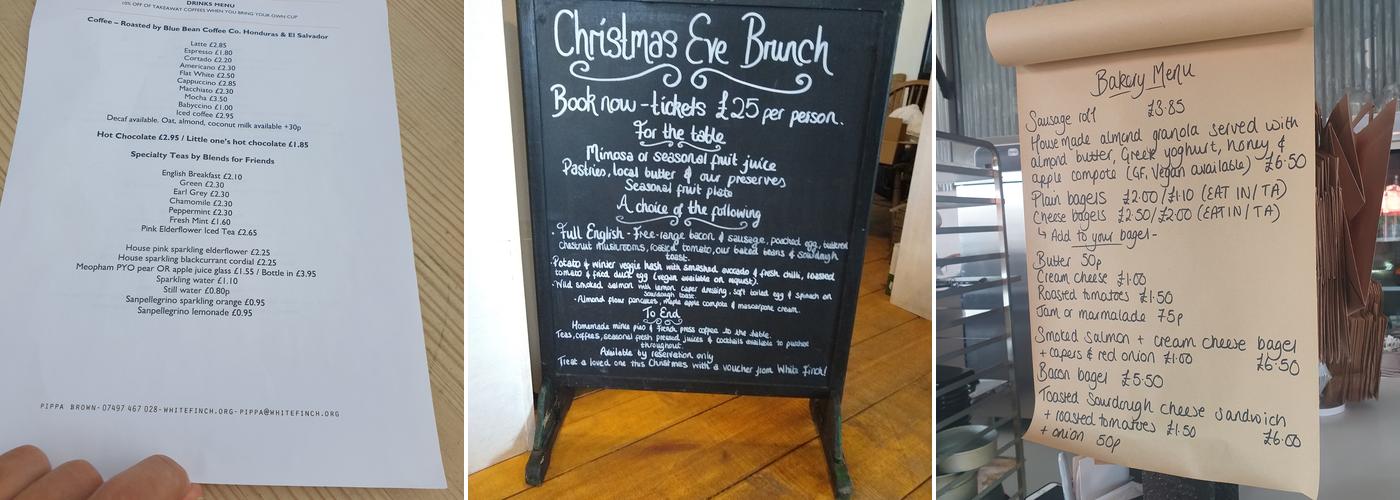 DRINKS MENU
10% OFF OF TAKEAWAY COFFEES WHEN YOU BRING YOUR OWN CUP
Coffee – Roasted by Blue Bean Coffee Co. Honduras & El Salvador
Latte £2.85
Espresso £1.80
Cortado £2.20
Americano £2.30
Flat White £2.50
Cappuccino £2.85
Macchiato £2.30
Mocha £3.50
Babyccino £1.00
Iced coffee £2.95
Decaf available. Oat, almond, coconut milk available +30p
Hot Chocolate £2.95 / Little one's hot chocolate £1.85
Specialty Teas by Blends for Friends
English Breakfast £2.10
Green £2.30
Earl Grey £2.30
Chamomile £2.30
Peppermint £2.30
Fresh Mint £1.60
Pink Elderflower Iced Tea £2.65
House pink sparkling elderflower £2.25
House sparkling blackcurrant cordial £2.25
Meopham PYO pear OR apple juice glass £1.55 / Bottle in £3.95
Sparkling water £1.10
Still water £0.80p
Sanpellegrino sparkling orange £0.95
Sanpellegrino lemonade £0.95
PIPPA BROWN-07497 467 028-WHITEFINCH.ORG-PIPPA@WHITEFINCH.ORG
Christmas Eve Brunch
Book now - tickets £25 per person.
For the table
Mimosa or seasonal fruit juice
Pastries, local butter & our preserves
Seasonal fruit plate
A choice of the following
· Full English - Free-range bacon & sausage, poached egg, buttered
chestnut mushrooms, roasted tomato, our baked beans & sourdough
toast.
· Potato & winter veggie hash with smashed avocado & fresh chilli, roasted
tomato & fried duck egg (vegan available on request).
· Wild smoked salmon with lemon caper dressing, soft boiled egg & spinach on
sourdough toast.
· Almond flour pancakes, maple apple compote & mascarpone cream.
To End
Homemade mince pies & french press coffee to the table.
Teas, coffees, seasonal fresh pressed juices & cocktails available to purchase
throughout.
Available by reservation only
Treat a loved one this Christmas with a voucher from White Finch!
Bakery Menu
Sausage roll £3.85
House made almond granola served with
almond butter, Greek yoghurt, honey &
apple compote (GF, Vegan available) £6.50
Plain bagels £2.00/£1.10 (EAT IN/TA)
Cheese bagels £2.50/£2.00 (EAT IN/TA)
↳ Add to your bagel-
Butter 50p
Cream cheese £1.00
Roasted tomatoes £1.50
Jam or marmalade 75p
Smoked salmon + cream cheese bagel
+ capers & red onion £1.00 £6.50
Bacon bagel £5.50
Toasted Sourdough cheese sandwich
+ roasted tomatoes £1.50 £6.00
+ onion 50p